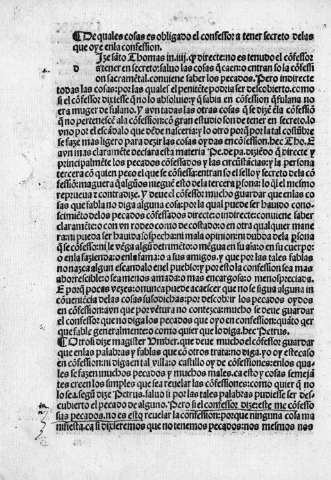 ¶De quales cosas es obligado el confessor a tener secreto delas
que oye enla confession.
Ize sãto Thomas in.iiij. q̃ directe: no es tenudo el cõfessor
d a tener en secreto: saluo las cosas q̃ caen: o entran so la cõfessi
on sacramẽtal. conuiene saber los pecados. Pero indirecte
todas las cosas: por las quales el penitẽte podria ser descobierto. como
si el cõfessor dixiesse q̃ no lo absoluio: y q̃ sabia en cõfession q̃ fulana no
era muger de fulano. Y avn todas las otras cosas q̃ se dizẽ ẽla cõfessiõ
q̃ no pertenescẽ ala cõfession: cõ gran estudio son de tener en secreto. lo
vno por el escãdalo que dẽde nasceria: y lo otro porq̃ por la tal costũbre
se faze mas ligero para dezir las cosas oydas en cõfession. hec .T. ho. E
avn mas claramẽte declara esta materia Pe. de pa. diziẽdo q̃ directe y
principalmẽte los pecados cõfessados y las circũstãcias: y la persona
tercera cõ quien peco el que se cõfiessa: entran so el sello y secreto dela cõ
fession: maguera q̃ algũos niegue esto dela tercera psona: lo q̃l el mesmo
reprueua cõtra dize. Y deue el cõfessor mucho guardar que enlas co
sas que fabla no diga alguna cosa: por la qual puede ser hauido conos-
cimiẽto delos pecados cõfessados directe o indirecte: conuiene saber
claramẽte: o con vn rodeo como de costado: o en otra qualquier mane
ra: ni pueda ser hauida sospecha: ni mala opinion: ni dubda dela psona
q̃ se cõfesso: ni le vẽga algũ detrimẽto: o mẽgua en su aĩa: o en su cuerpo:
o enla fazienda: o enla fama: o a sus amigos. y que por las tales fablas
no nazca algun escãdalo enel pueblo: y por esto la confession sea mas
aborrescible: o sea menos amada: o mas encargosa: o menospreciada.
E porq̃ pocas vezes: o nunca puede acaescer que no se sigua alguna in
cõueniẽcia delas cosas susodichas: por descobrir los pecados oydos
en cõfession: avn que por vẽtura no conezca: mucho se deue guardar
el confessor que no diga los pecados que oyo en confession: quãto q̃er
que fable generalmente: o como quier que lo diga. hec Petrus.
¶Otrosi dize magister Vmber. que deue mucho el cõfessor guardar
que enlas palabras y fablas que cõ otros trata: no diga. yo oy este caso
en cõfession: ni diga en tal villa: o castillo oy de cõfessiones: enlos qua-
les se fazen muchos pecados y muchos males. ca esto y cosas semejã
tes creen los simples que sea reuelar las cõfessiones: como quier q̃ no
lo sea. segũ dize Petrus. saluo si por las tales palabras pudiesse ser des-
cubierto el pecado de alguno. Pero si el confessor dize: este me cõfesso
sus pecados. no es esto reuelar la confession: porque ninguna cosa ma
nifiesta. ca si dixeremos que no tenemos pecados: nos mesmos nos